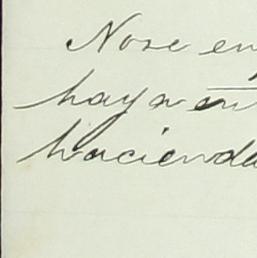 Nose en
haya en
hacienda